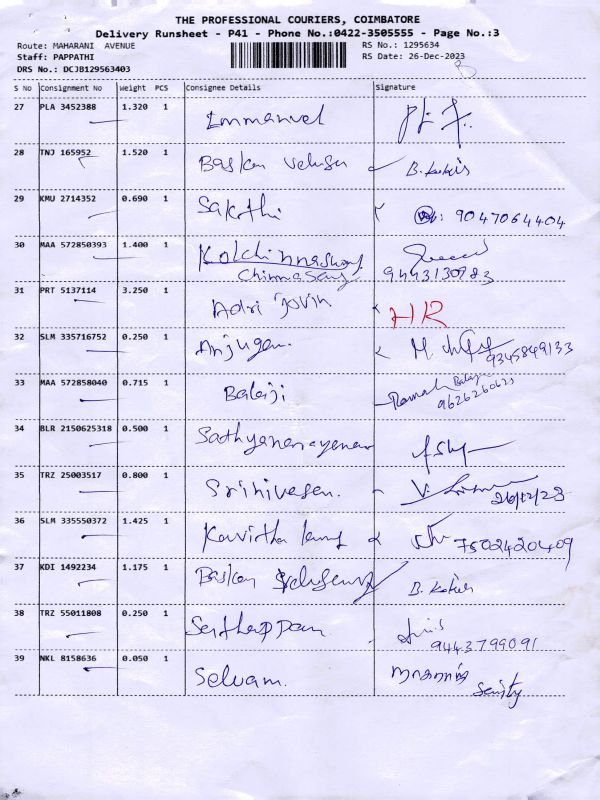 THE PROFESSIONAL COURIERS, COIMBATORE
Delivery Runsheet - P41 - Phone No.:0422-3505555 - Page No.:3
Route: MAHARANI AVENUE RS No.: 1295634
Staff: PAPPATHI RS Date: 26-Dec-2023
DRS No.: DCJB129563403
S No Consignment No Weight PCS Consignee Details Signature
27 PLA 3452388 1.320 1 Immanuel
28 TNJ 165952 1.520 1 Baskar
29 KMU 2714352 0.690 1 Sakthi 9047064404
30 MAA 572850393 1.400 1
Chinnasamy
31 PRT 5137114 3.250 1 HR
32 SLM 335716752 0.250 1 Anjugam 9345849133
33 MAA 572858040 0.715 1 Balaji
34 BLR 2150625318 0.500 1 Sathyanarayanan
35 TRZ 25003517 0.800 1 Srinivasan.
26/12/23
36 SLM 335550372 1.425 1 Kavitha 7502420409
37 KDI 1492234 1.175 1 Baskar
38 TRZ 55011808 0.250 1
9443799091
39 NKL 8158636 0.050 1 Selvam.